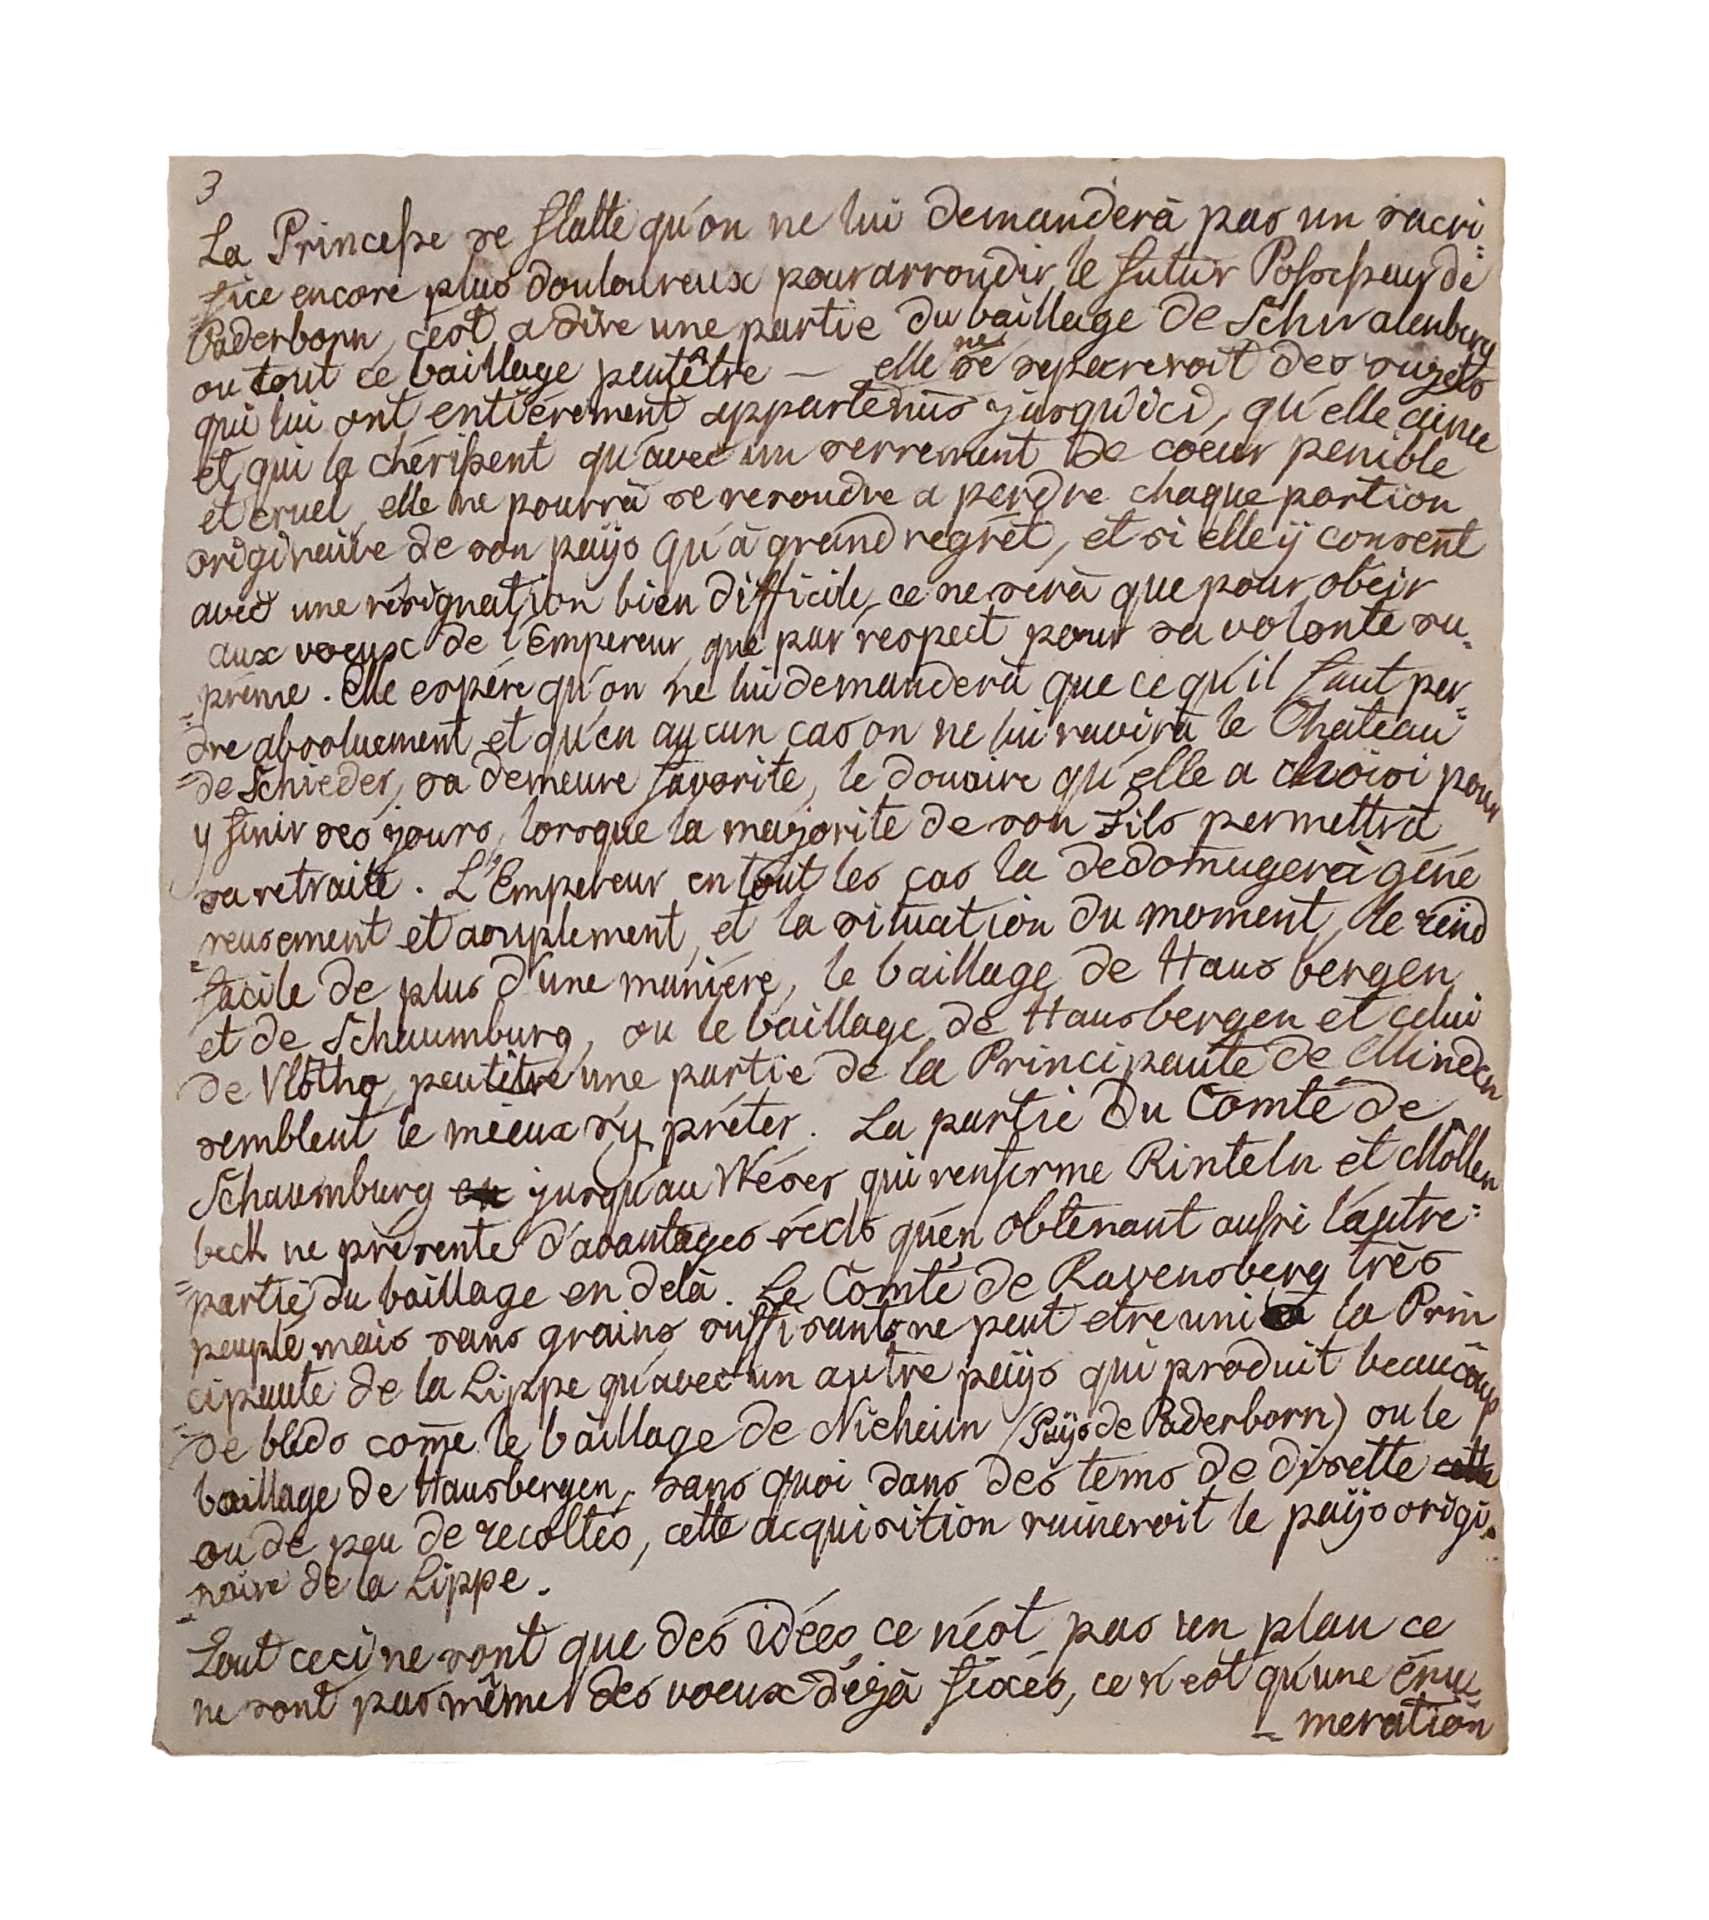 3
La Princesse se flatte qu'on ne lui demanderà pas un sacri-
fice encore plus douloureux pour arrondir le futur Possesseur de
Paderborn, c'est a dire une partie du baillage de Schwalenberg
ou tout ce baillage peutêtre — elle ne se separeroit des sujets
qui lui ont entièrement appartenus jusqu'ici, qu'elle aime
et qui la chérissent qu'avec un serrement de coeur penible
et cruel, elle ne pourrà se resoudre a perdre chaque portion
originaire de son païjs qu'à grand regrèt, et si elle ij consent
avec une résignation bien difficile, ce ne serà que pour obéir
aux voeux de l'Empereur, que par respect pour sa volonté su-
prême. Elle espére qu'on ne lui demanderà que ce qu'il faut per-
dre absoluement et qu'en aucun cas on ne lui ravirà le Chateau
de Schieder, sa demeure favorite, le douaire qu'elle a choisi pour
y finir ses jours, lorsque la majorité de son Fils permettrà
sa retraite. L'Empereur en tout les cas la dedom̅agerà géné
reusement et amplement, et la situation du moment, le rend
facile de plus d'une maniére, le baillage de Hausbergen
et de Schaumburg, ou le baillage de Hausbergen et celui
de Vlotho, peutêtre une partie de la Principauté de Minden
semblent le mieux s'y préter. La partie du Comté de
Schaumburg jusqu'au Wéser qui renferme Rinteln et Möllen
beck ne présente d'avantages réels qu'en obtenant aussi l'autre
partie du baillage en delà. Le Comté de Ravensberg très
peuplé mais sans grains suffisants ne peut etre uni à la Prin
cipauté de la Lippe qu'avec un autre païjs qui produit beaucoup
de bleds com̅e le baillage de Nieheim (Païjs de Paderborn) ou le
baillage de Hausbergen, sans quoi dans des tems de disette
ou de peu de recoltes, cette acquisition ruineroit le païjs origi-
naire de la Lippe.
Tout ceci ne sont que des idées, ce n'est pas un plan ce
ne sont pas même des voeux déjà fixés, ce n'est qu'une énu-
meration